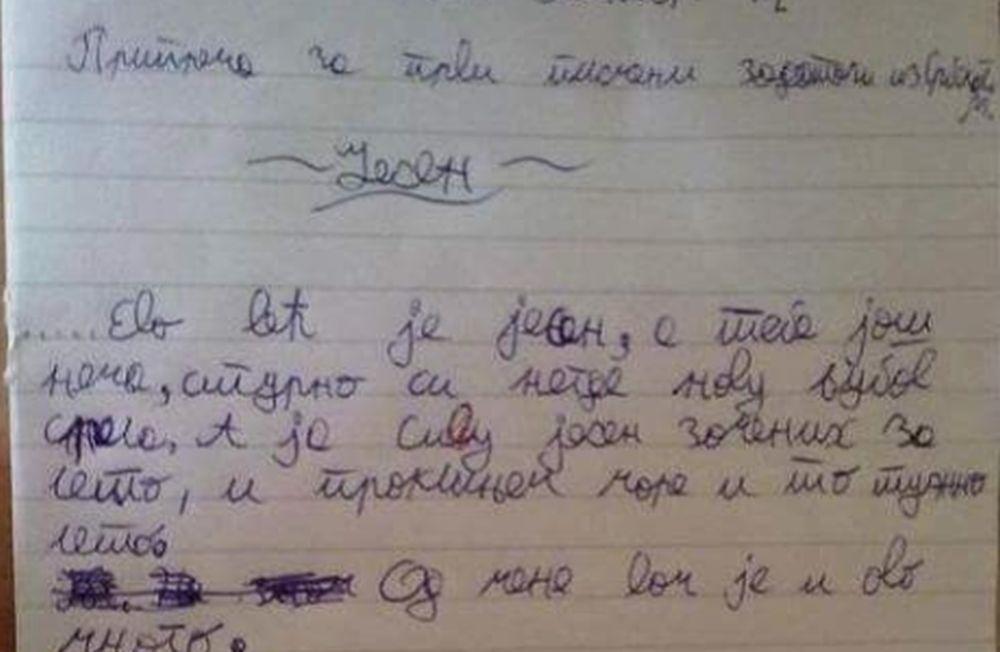 Припрема за први писмени задатак из
~Јесен~
.....Ево већ је јесен, а тебе још
нема, сигурно си негде нову љубав
срела. А ја сиву јесен замених за
лето, и проклињем море и то тужно
лето.
Од мене вам је и ово
много.